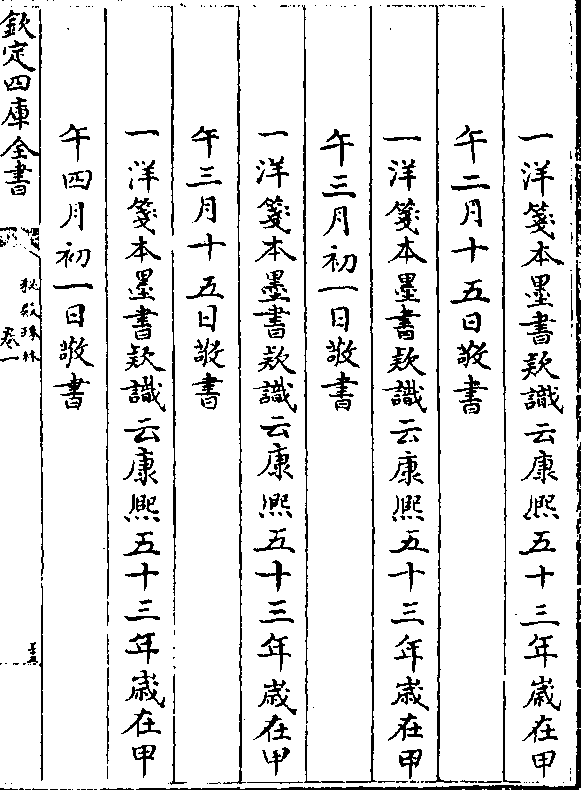 一洋箋本墨書款識云康熙五十三年歲在甲
午二月十五日敬書
一洋箋本墨書款識云康熙五十三年歲在甲
午三月初一日敬書
一洋箋本墨書款識云康熙五十三年歲在甲
午三月十五日敬書
一洋箋本墨書款識云康熙五十三年歲在甲
午四月初一日敬書
欽定四庫全書
秘殿珠林
卷一